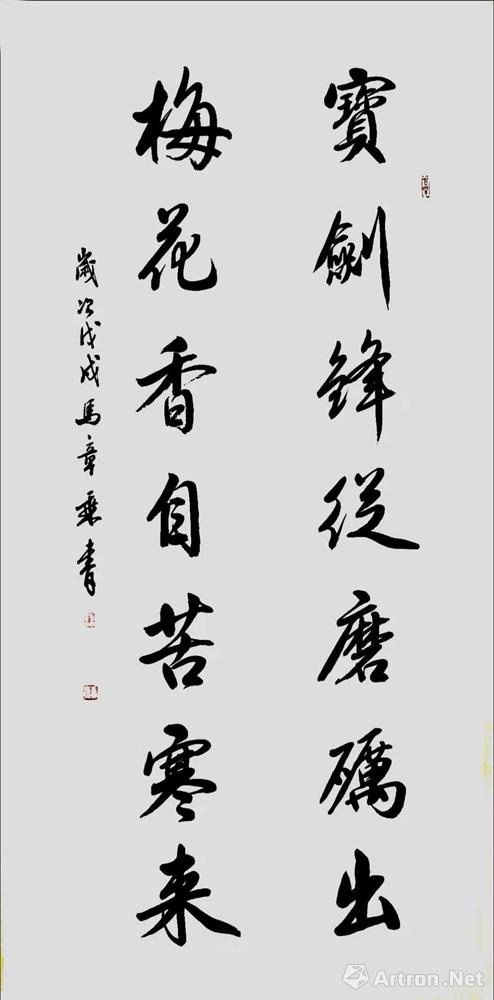 寶劍鋒從磨礪出
梅花香自苦寒来
歲次戊戌馬章乘青
Artron.Net